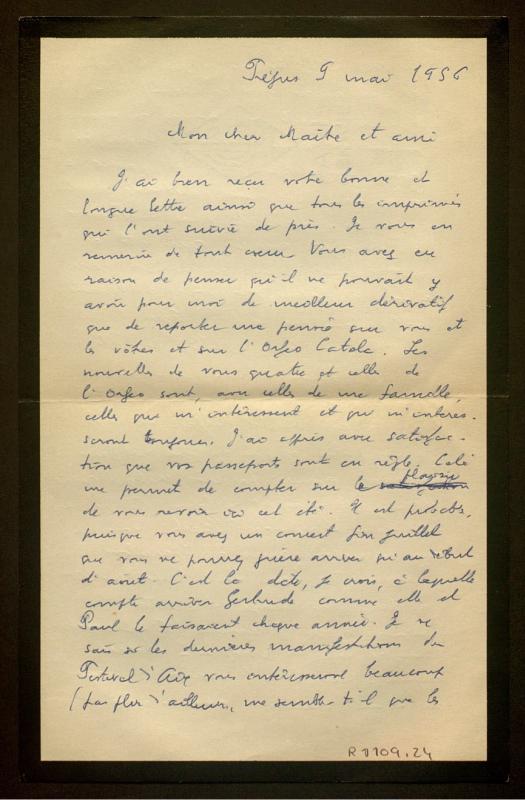 Fréjus 9 mai 1956
Mon cher Maître et ami
J'ai bien reçu votre bonne et
longue lettre ainsi que tous les imprimés
qui l'ont suivie de près. Je vous en
remercie de tout cœur. Vous avez eu
raison de penser qu'il ne pouvait y
avoir pour moi de meilleur dérivatif
que de reporter une pensée sur vous et
les vôtres et sur l'Orfeo Catala. Les
nouvelles de vous quatre et celles de
l'Orfeo sont, avec celles de ma famille,
celles qui m'intéressent et qui m'intéres-
seront toujours. J'ai appris avec satisfac-
tion que vos passeports sont en règle. Celà
me permet de compter sur le plaisir
de vous revoir ici cet été. Il est probable,
puisque vous avez un concert fin juillet
que vous ne pourrez guère arriver qu'au début
d'août. C'est la date, je crois, à laquelle
compte arriver Gertrude comme elle et
Paul le faisaient chaque année. Je ne
sais si les dernières manifestations du
Festival d'Aix vous intéresseront beaucoup
(pas plus d'ailleurs, me semble-t-il que les
R 1109.24